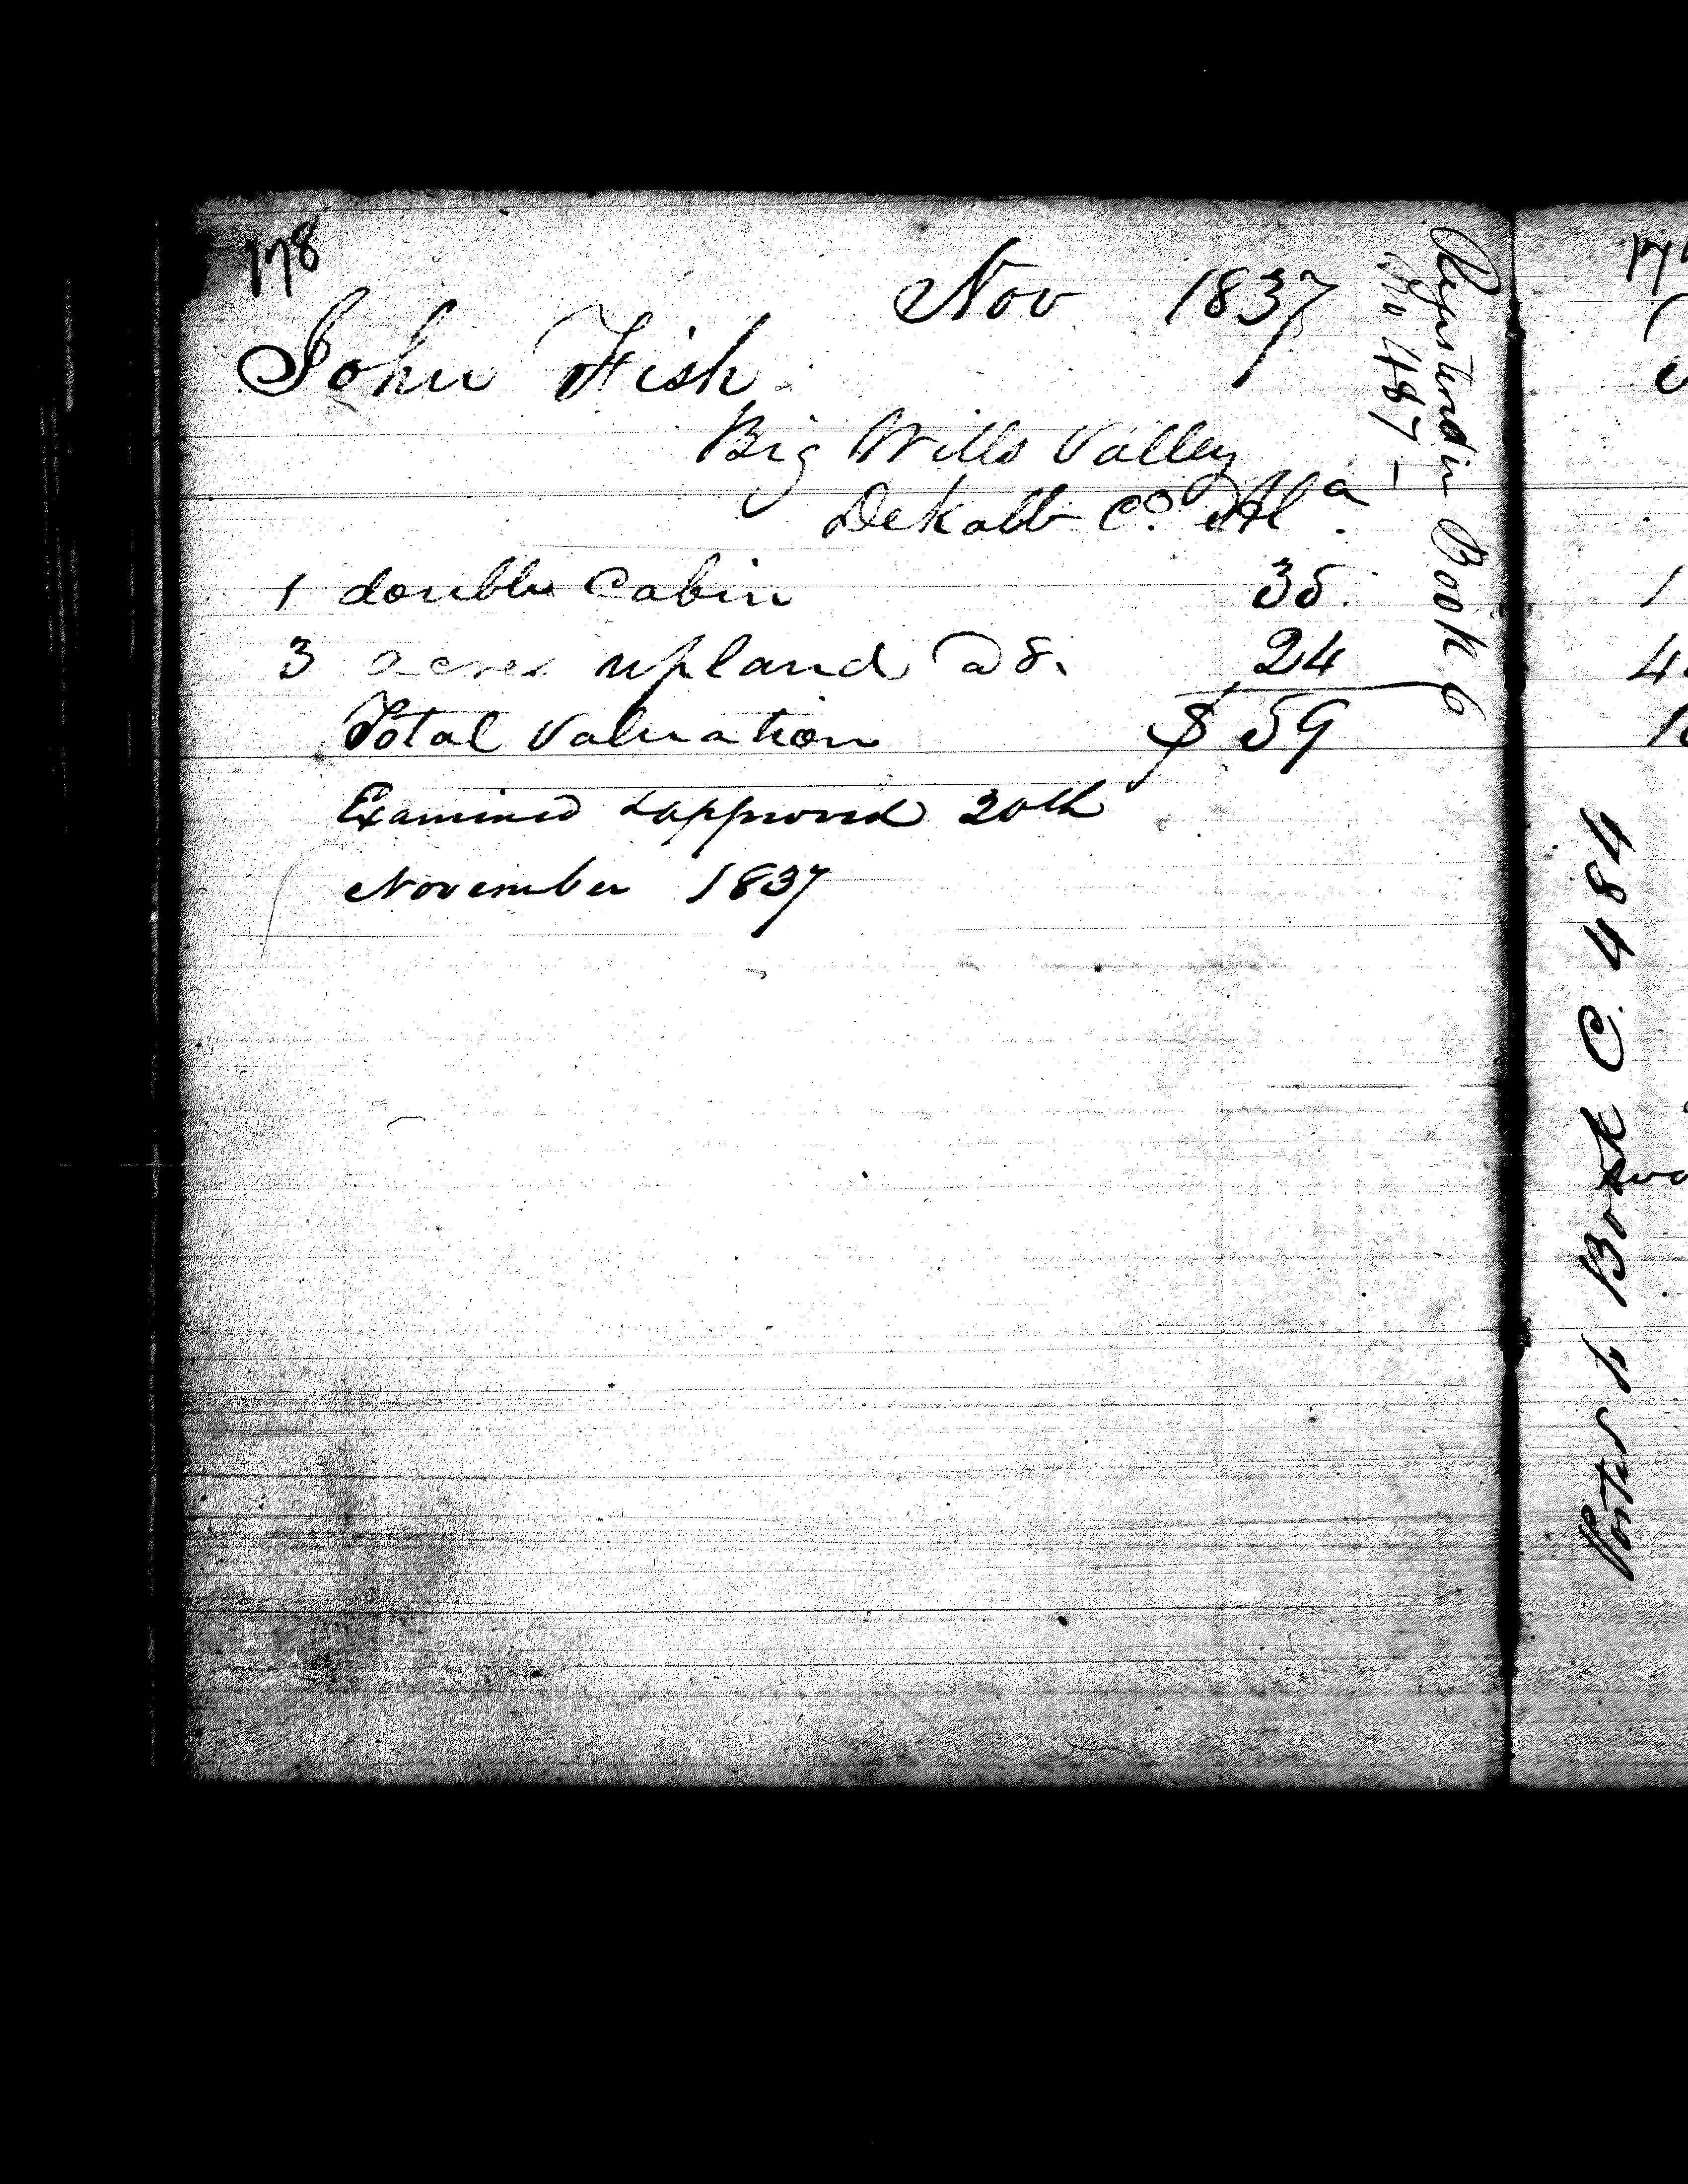 178
Nov 1837
John Fish
Big Wills Valley
DeKalb Co. Ala.
1 double Cabin 35.
3 acres upland @ 8. 24
Total Valuation $ 59
Examined & approved 20th
November 1837
Registerd in Book 6
No 487 –
17
1
4
Posted to Book C. 484